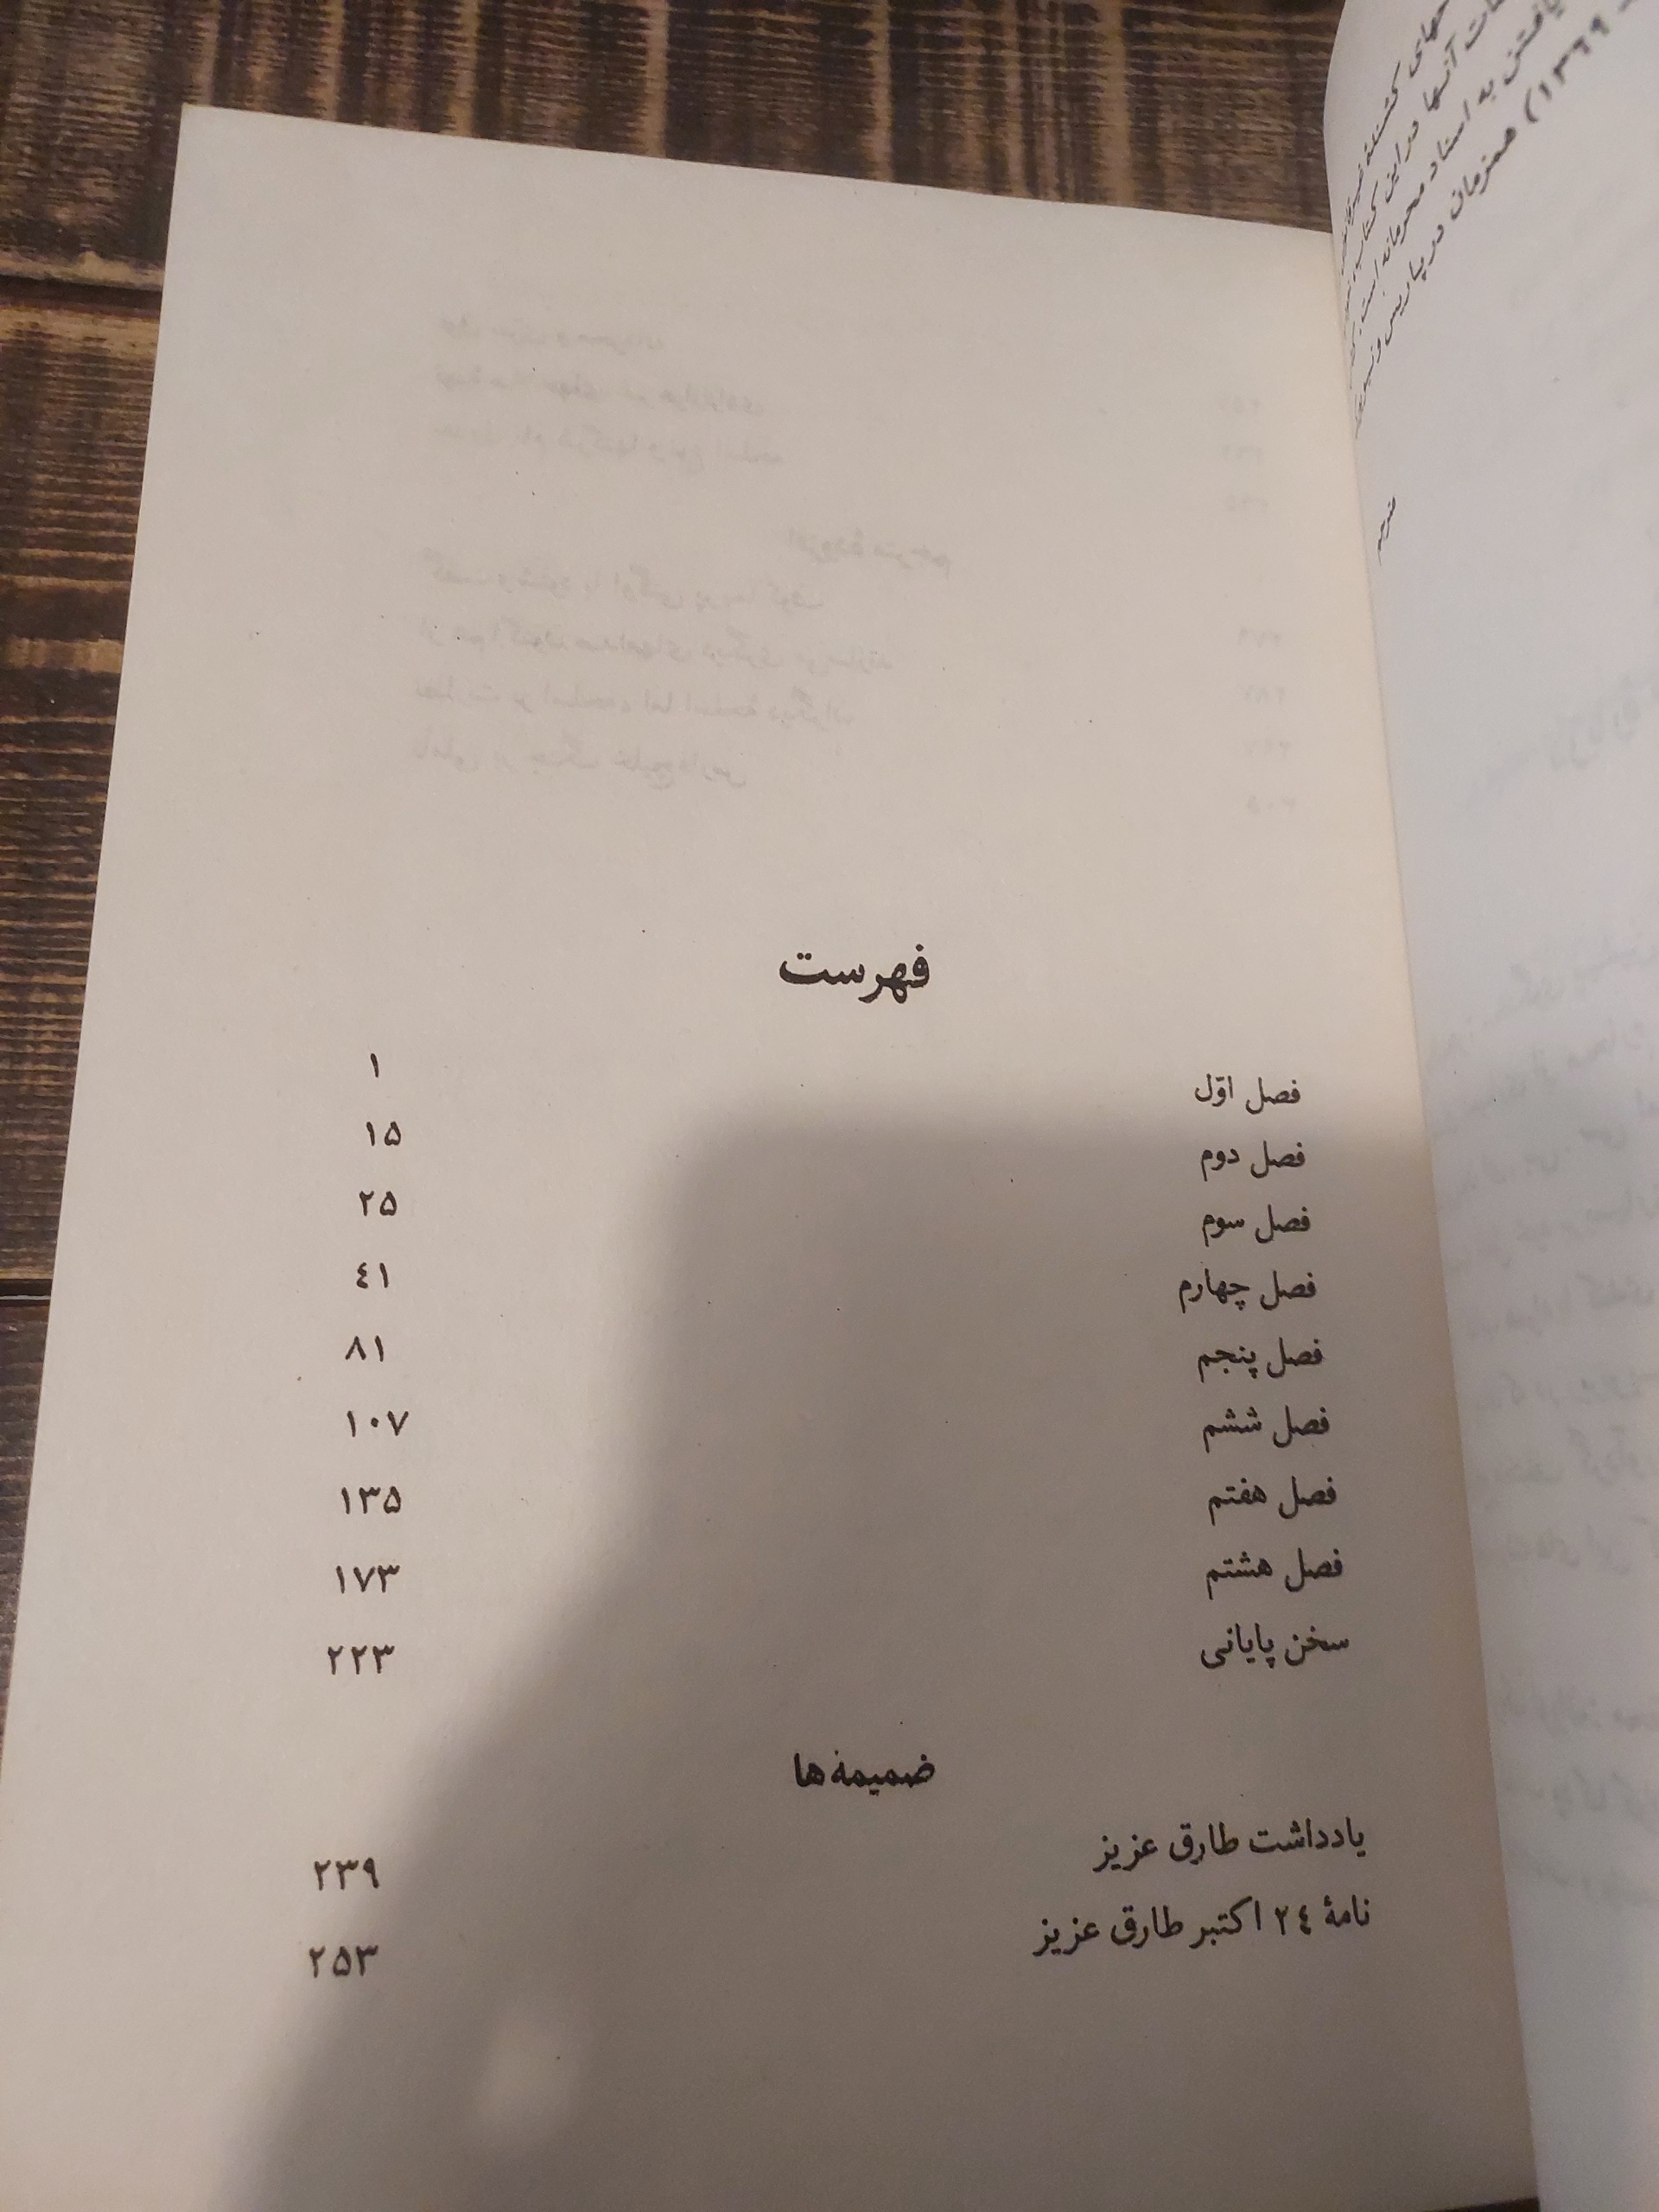 جهای کشنده
آنها در این کتاب
یافتن به اسناد محرمانه است.
۱۳۶۹) همزمان در پاریس و
مترجم
فهرست
فصل اوّل ۱
فصل دوم ۱۵
فصل سوم ۲۵
فصل چهارم ٤۱
فصل پنجم ۸۱
فصل ششم ۱۰۷
فصل هفتم ۱۳۵
فصل هشتم ۱۷۳
سخن پایانی ۲۲۳
ضمیمه‌ها
یادداشت طارق عزیز ۲۳۹
نامۀ ۲٤ اکتبر طارق عزیز ۲۵۳